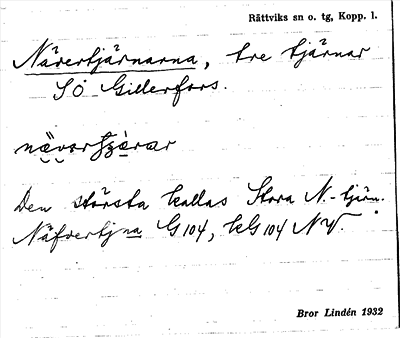 Rättviks sn o. tg, Kopp. l.
Nävertjärnarna, tre tjärnar
SÖ Gillerfors.
Den största kallas Stora N.-tjärn.
Näfvertjna G104, kG104 NV.
Bror Lindén 1932